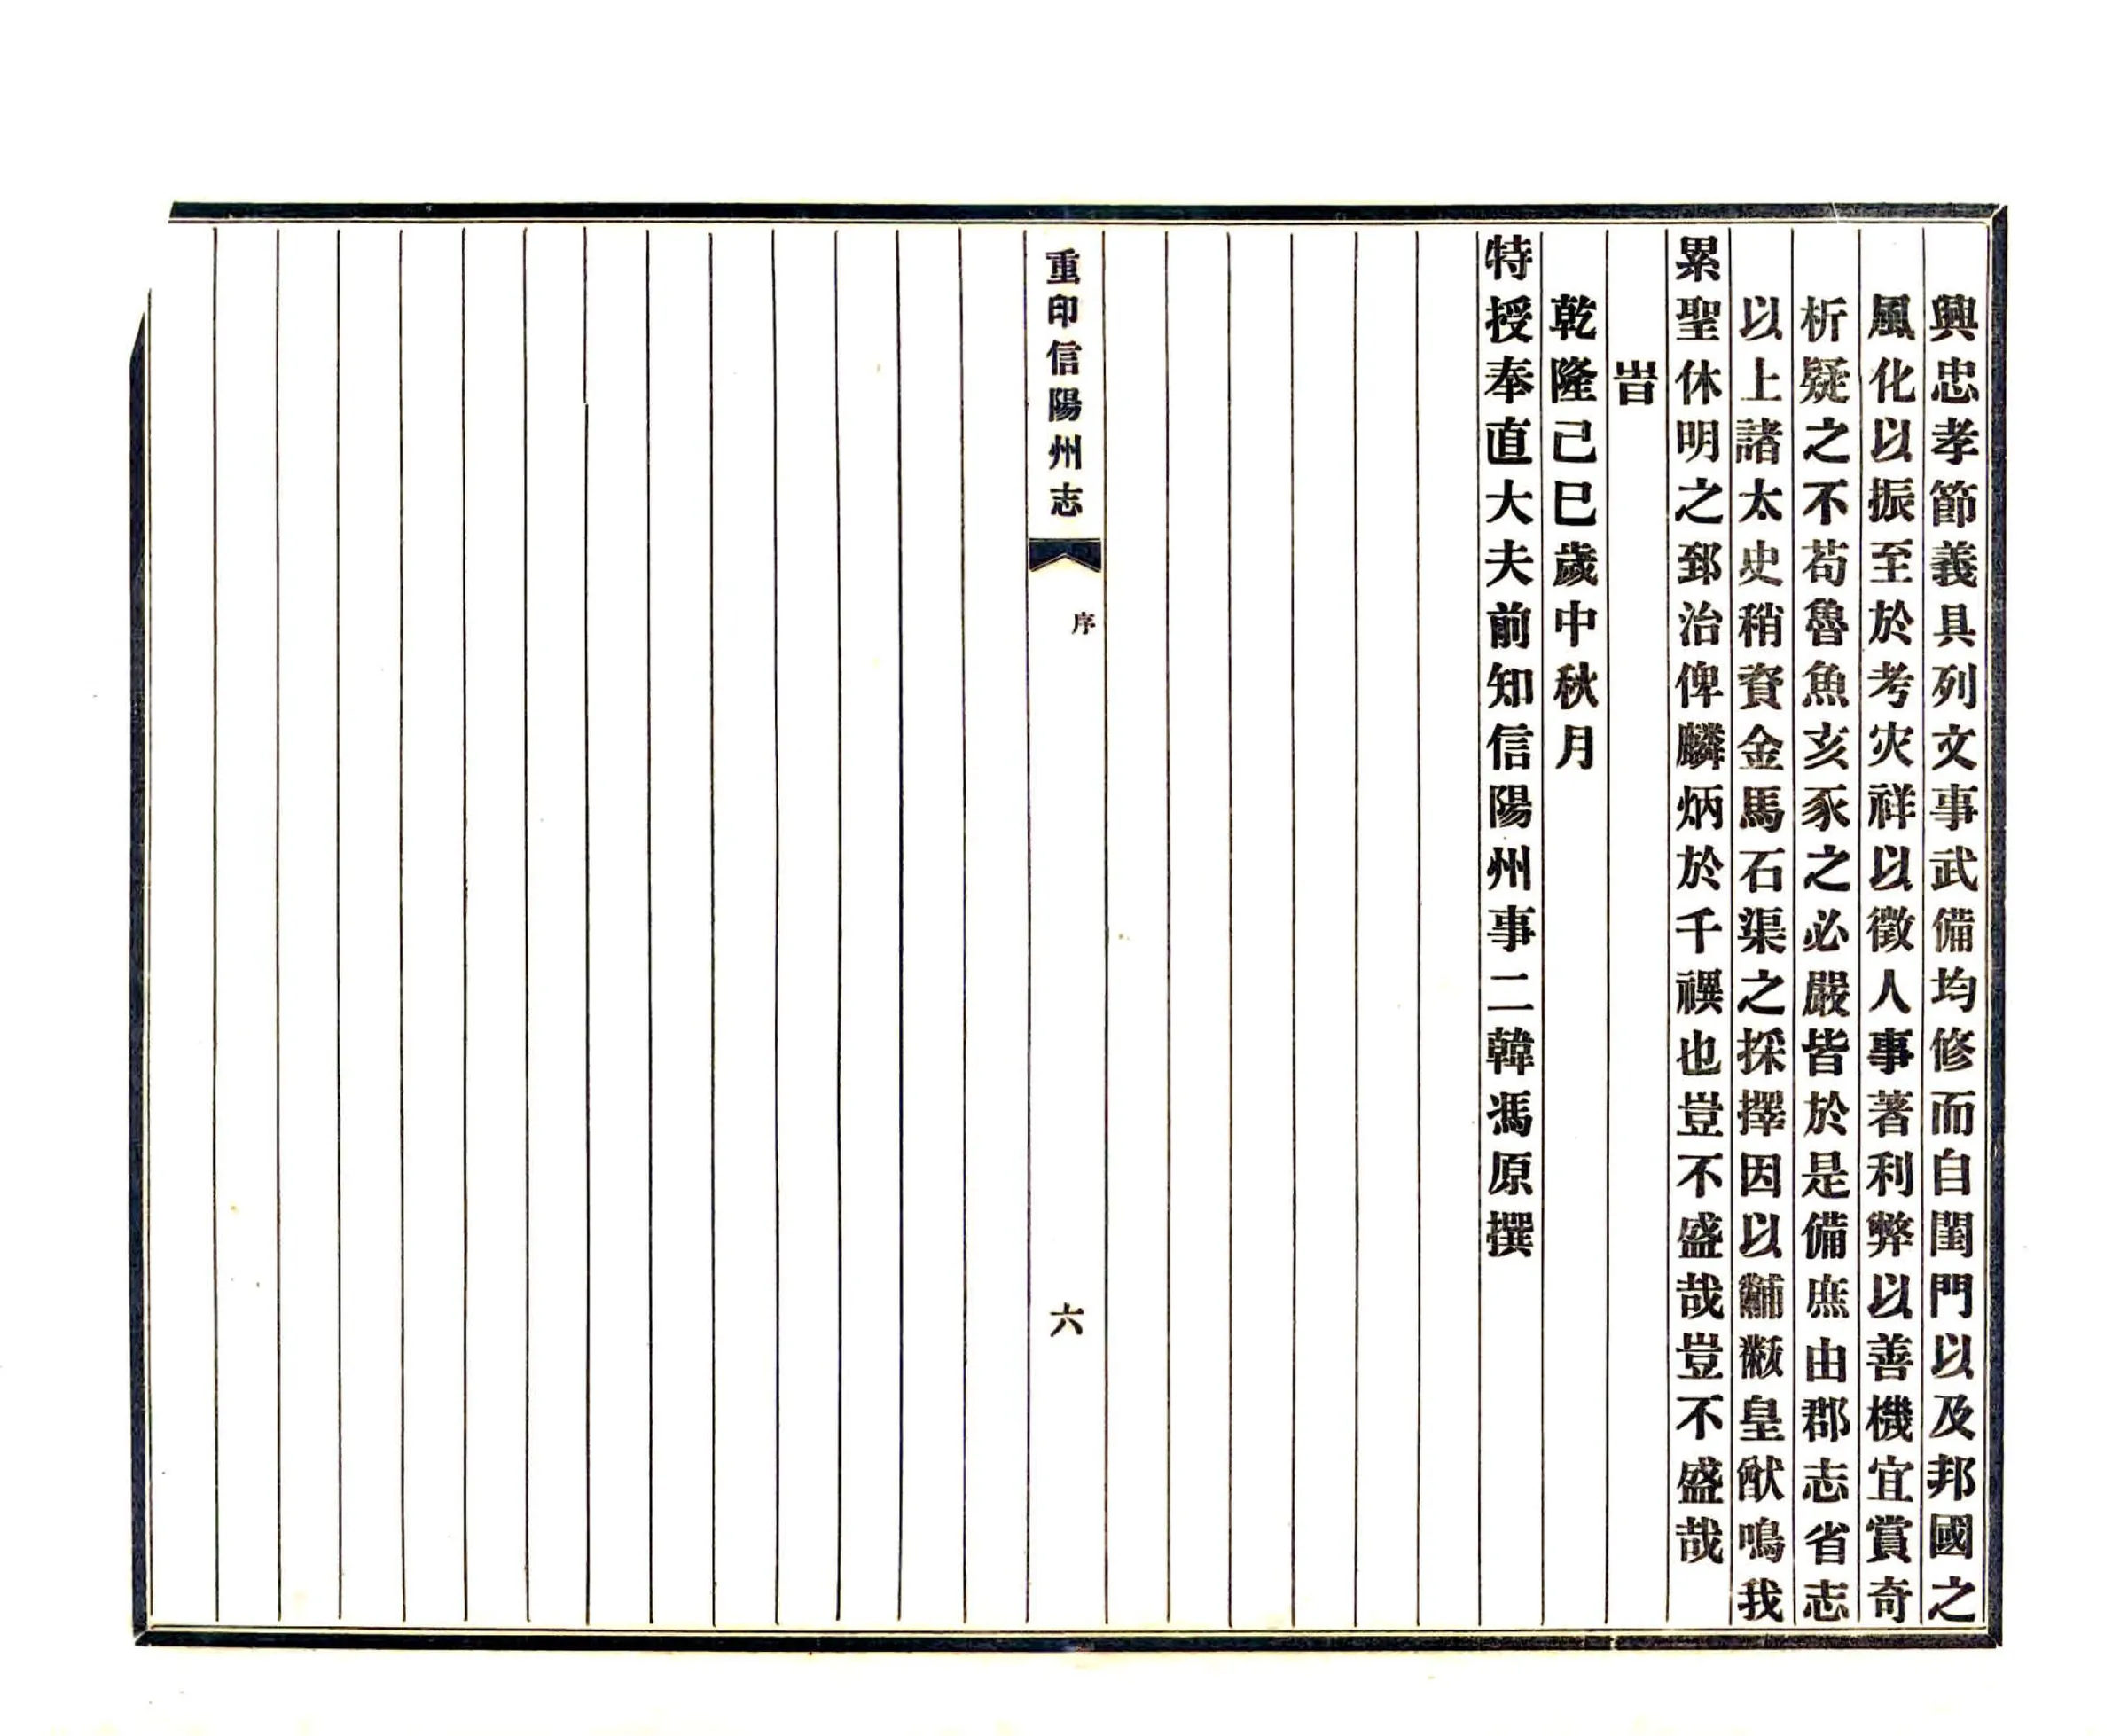 興忠孝節義具列文事武備均修而自閨門以及邦國之
風化以振至於考灾祥以徵人事著利弊以善機宜賞奇
析疑之不苟魯魚亥豕之必嚴皆於是備庶由郡志省志
以上諸太史稍資金馬石渠之採擇因以黼黻皇猷鳴我
累聖休明之郅治俾麟炳於千禩也豈不盛哉豈不盛哉
旹
乾隆己巳歲中秋月
特授奉直大夫前知信陽州事二韓馮原撰
重印信陽州志
序
六